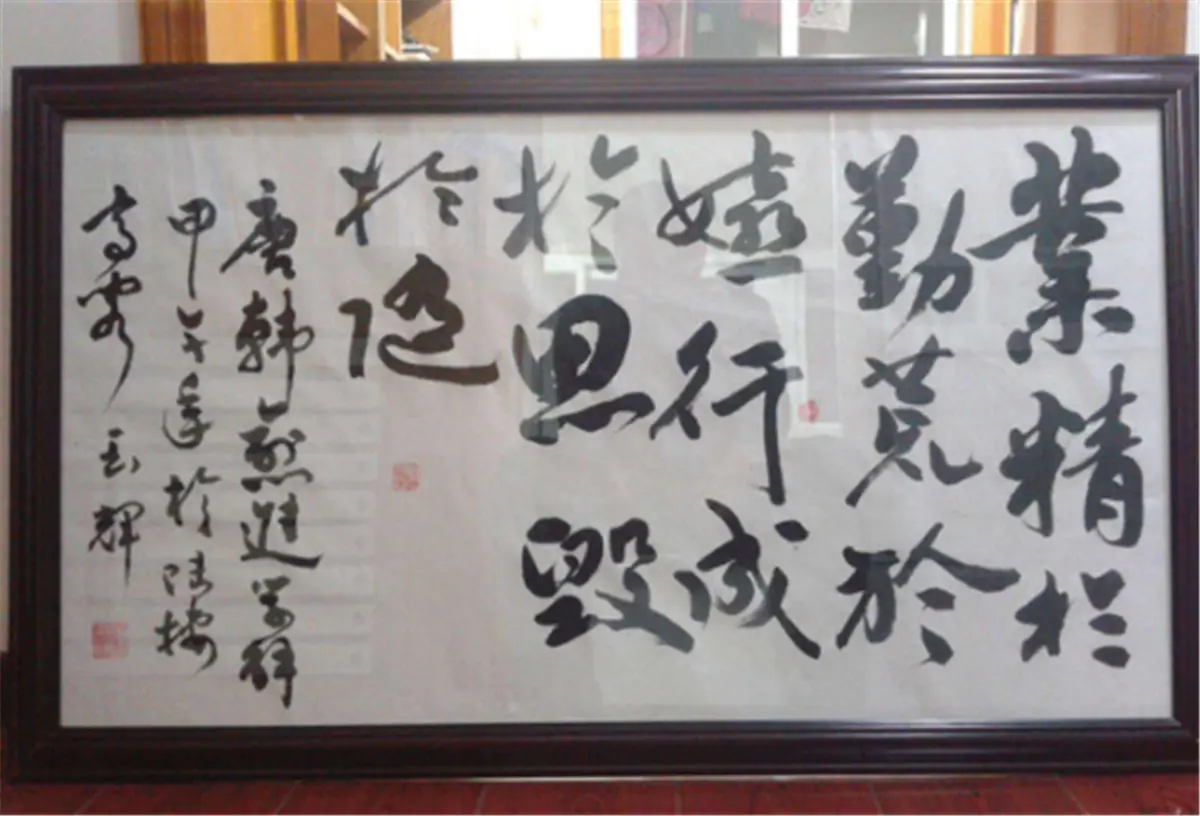 業精於
勤荒於
嬉行成
於思毀
於隨
唐韓愈進學解
甲午年於
玉輝